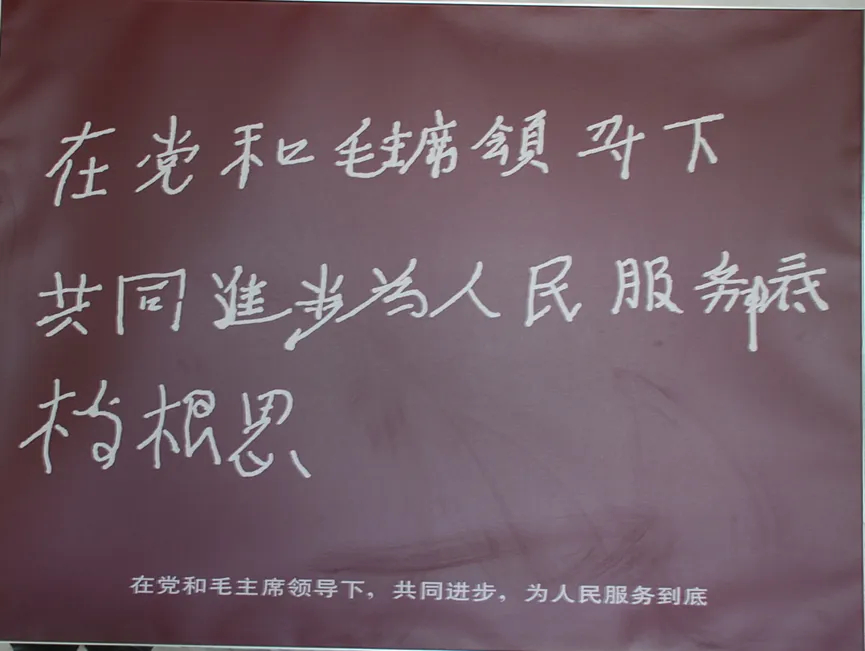 在党和毛主席領导下
共同進步为人民服务到底
杨根思
在党和毛主席领导下，共同进步，为人民服务到底